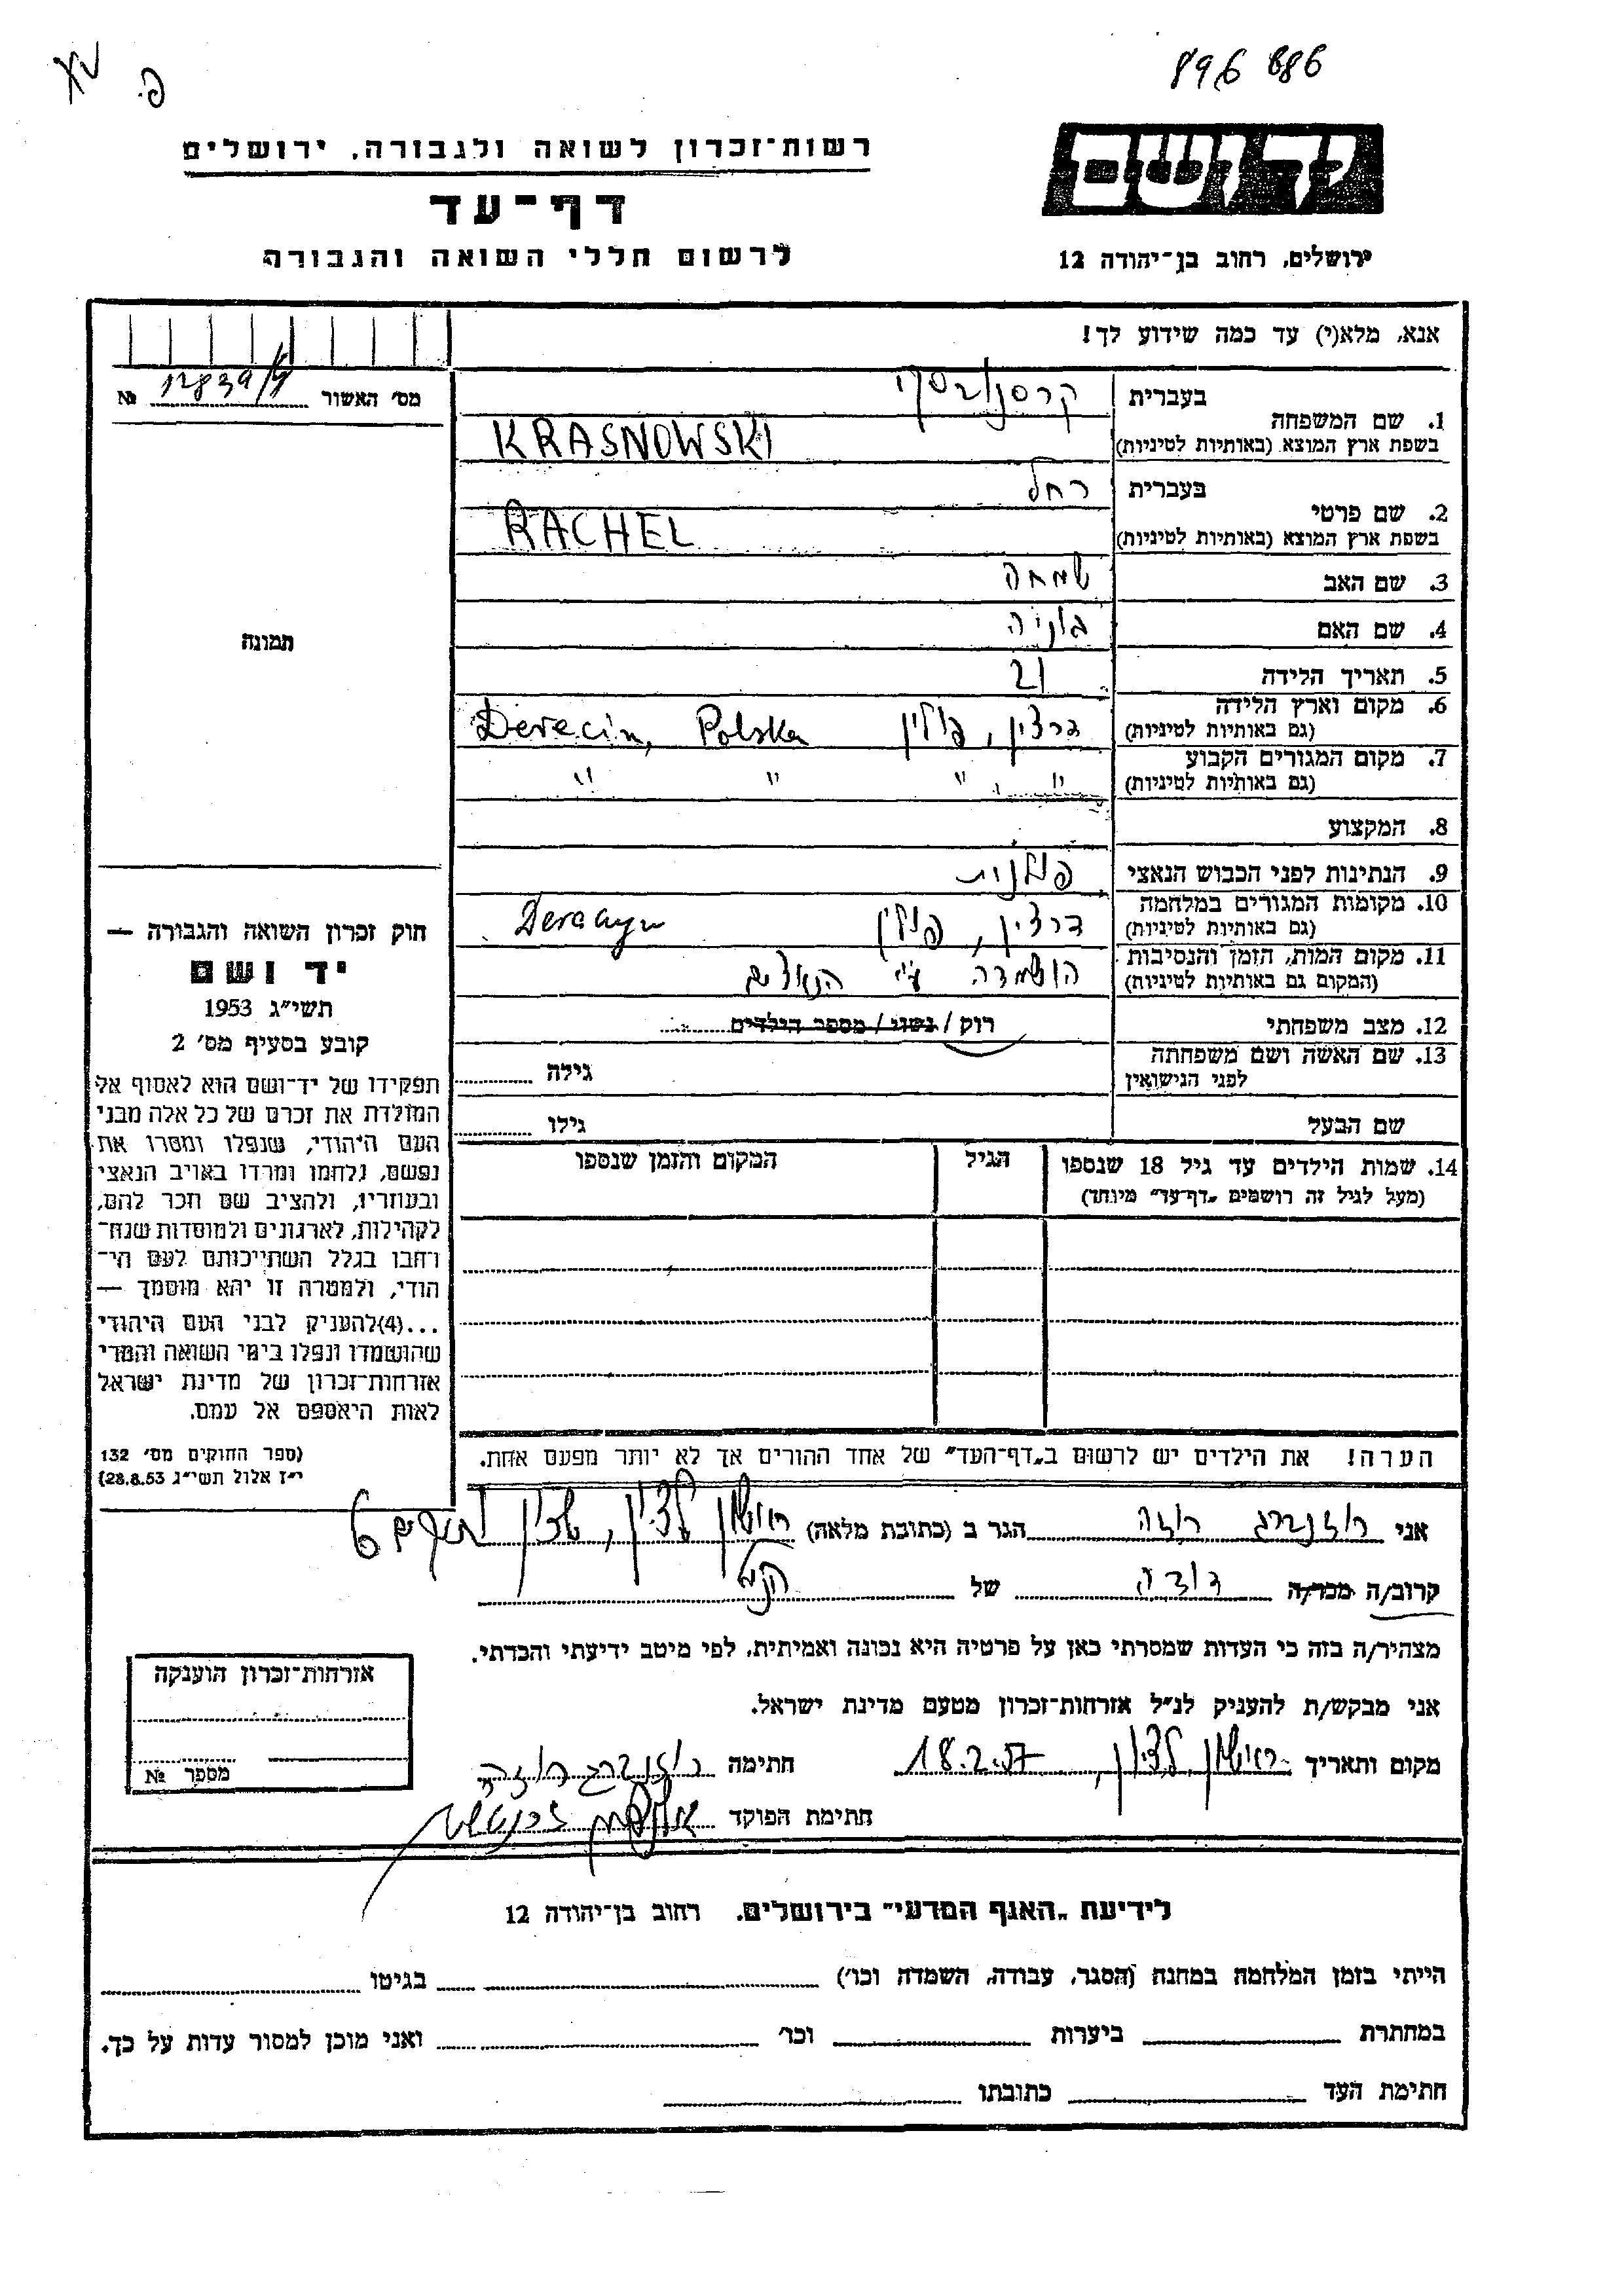 896 886
פ.
רשות־זכרון לשואה ולגבורה, ירושלים
דף־עד
לרשום חללי השואה והגבורה
יד ושם
ירושלים, רחוב בן־יהודה 12
אנא, מלא(י) עד כמה שידוע לך!
מס' האשור 12839/ №
תמונה
1. שם המשפחה בעברית קרסנובסקי
בשפת ארץ המוצא (באותיות לטיניות) KRASNOWSKI
2. שם פרטי בעברית רחל
בשפת ארץ המוצא (באותיות לטיניות) RACHEL
3. שם האב שמחה
4. שם האם
5. תאריך הלידה 21
6. מקום וארץ הלידה (גם באותיות לטיניות) דרצין, פולין Derecin, Polska
7. מקום המגורים הקבוע (גם באותיות לטיניות) " " " "
8. המקצוע
9. הנתינות לפני הכבוש הנאצי פולנית
10. מקומות המגורים במלחמה (גם באותיות לטיניות) דרצין, פולין
11. מקום המות, הזמן והנסיבות (המקום גם באותיות לטיניות) הושמדה ע"י הנאצים
12. מצב משפחתי רוק / נשוי / מספר הילדים
13. שם האשה ושם משפחתה לפני הנישואין גילה
שם הבעל גילו
14. שמות הילדים עד גיל 18 שנספו הגיל המקום והזמן שנספו
(מעל לגיל זה רושמים „דף־עד" מיוחד)
הערה! את הילדים יש לרשום ב„דף־העד" של אחד ההורים אך לא יותר מפעם אחת.
חוק זכרון השואה והגבורה —
יד ושם
תשי"ג 1953
קובע בסעיף מס' 2
תפקידו של יד־ושם הוא לאסוף אל
המולדת את זכרם של כל אלה מבני
העם היהודי, שנפלו ומסרו את
נפשם, נלחמו ומרדו באויב הנאצי
ובעוזריו, ולהציב שם וזכר להם,
לקהילות, לארגונים ולמוסדות שנח־
רחבו בגלל השתייכותם לעם הי־
הודי, ולמטרה זו יהא מוסמך —
...(4)להעניק לבני העם היהודי
שהושמדו ונפלו בימי השואה והמרי
אזרחות־זכרון של מדינת ישראל
לאות היאספם אל עמם.
(ספר החוקים מס' 132
י"ז אלול תשי"ג 28.8.53)
אני רוזנברג רוזה הגר ב (כתובת מלאה) ראשון לציון, 6
קרוב/ה מכר/ה דודה של הנ"ל
מצהיר/ה בזה כי העדות שמסרתי כאן על פרטיה היא נכונה ואמיתית, לפי מיטב ידיעתי והכרתי.
אני מבקש/ת להעניק לנ"ל אזרחות־זכרון מטעם מדינת ישראל.
מקום ותאריך ראשון לציון, 18.2.57 חתימה רוזנברג רוזה
חתימת הפוקד
אזרחות־זכרון הוענקה
מספר №
לידיעת „האגף המדעי" בירושלים, רחוב בן־יהודה 12
הייתי בזמן המלחמה במחנה (הסגר, עבודה, השמדה וכו') בגיטו
במחתרת ביערות וכו' ואני מוכן למסור עדות על כך.
חתימת העד כתובתו